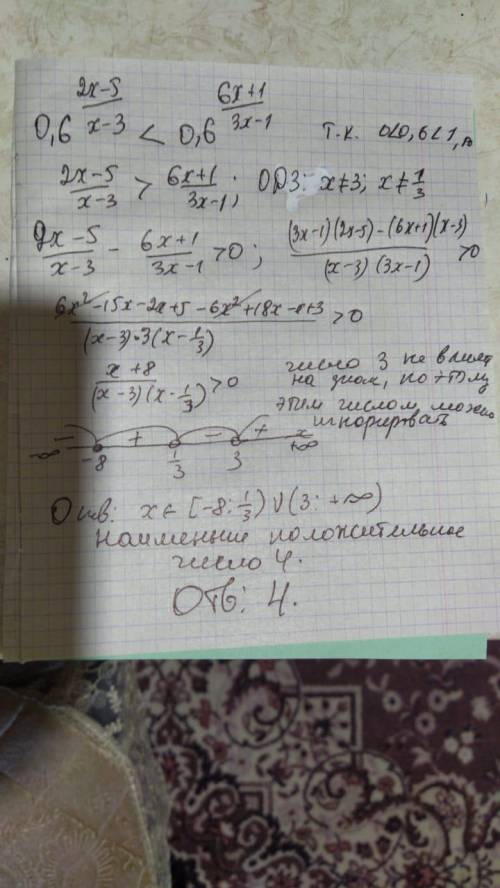 0,6^{\frac{2x-5}{x-3}} < 0,6^{\frac{6x+1}{3x-1}} т.к. 0<0,6<1,
\frac{2x-5}{x-3} > \frac{6x+1}{3x-1}; ОДЗ: x≠3; x≠\frac{1}{3}
\frac{2x-5}{x-3} - \frac{6x+1}{3x-1} >0; \frac{(3x-1)(2x-5)-(6x+1)(x-3)}{(x-3)(3x-1)} >0
\frac{6x²-15x-2x+5-6x²+18x-x+3}{(x-3)·3(x-\frac{1}{3})} >0
\frac{x+8}{(x-3)(x-\frac{1}{3})} >0
число 3 не влияет
на знак, поэтому
этим числом можно
игнорировать
- + - + x
-∞ -8 \frac{1}{3} 3 +∞
Отв: x∈ [-8; \frac{1}{3}) ∪ (3; +∞)
наименьшее положительное
число 4.
Отв: 4.